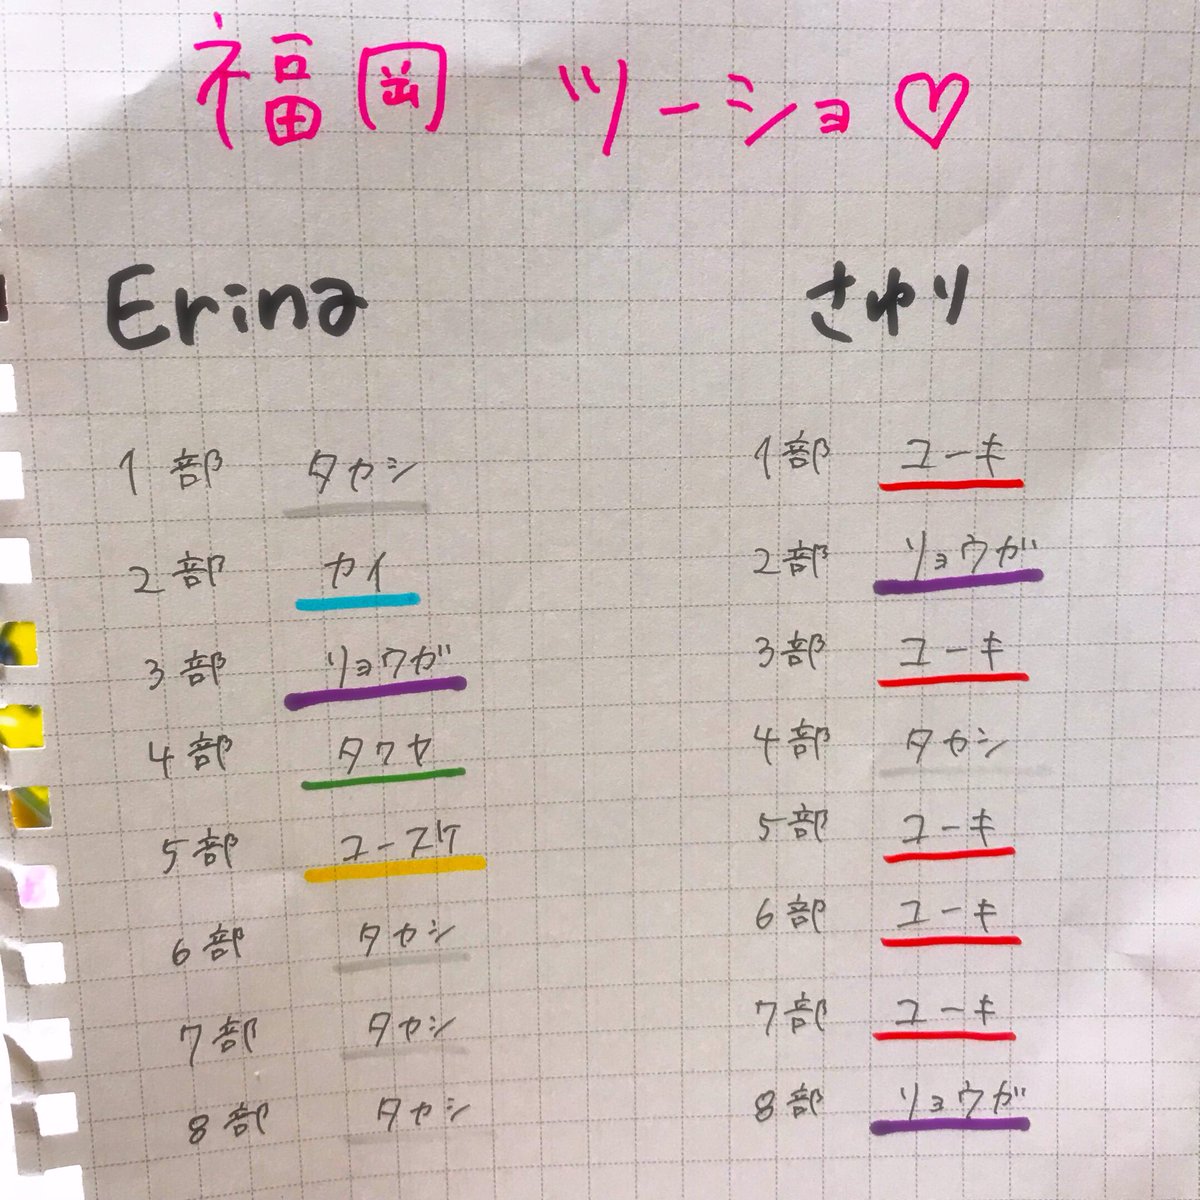 福岡 ツーショ♡
Erina
1部 タカシ
2部 カイ
3部 リョウガ
4部 タクヤ
5部 ユースケ
6部 タカシ
7部 タカシ
8部 タカシ
さゆり
1部 ユーキ
2部 リョウガ
3部 ユーキ
4部 タカシ
5部 ユーキ
6部 ユーキ
7部 ユーキ
8部 リョウガ